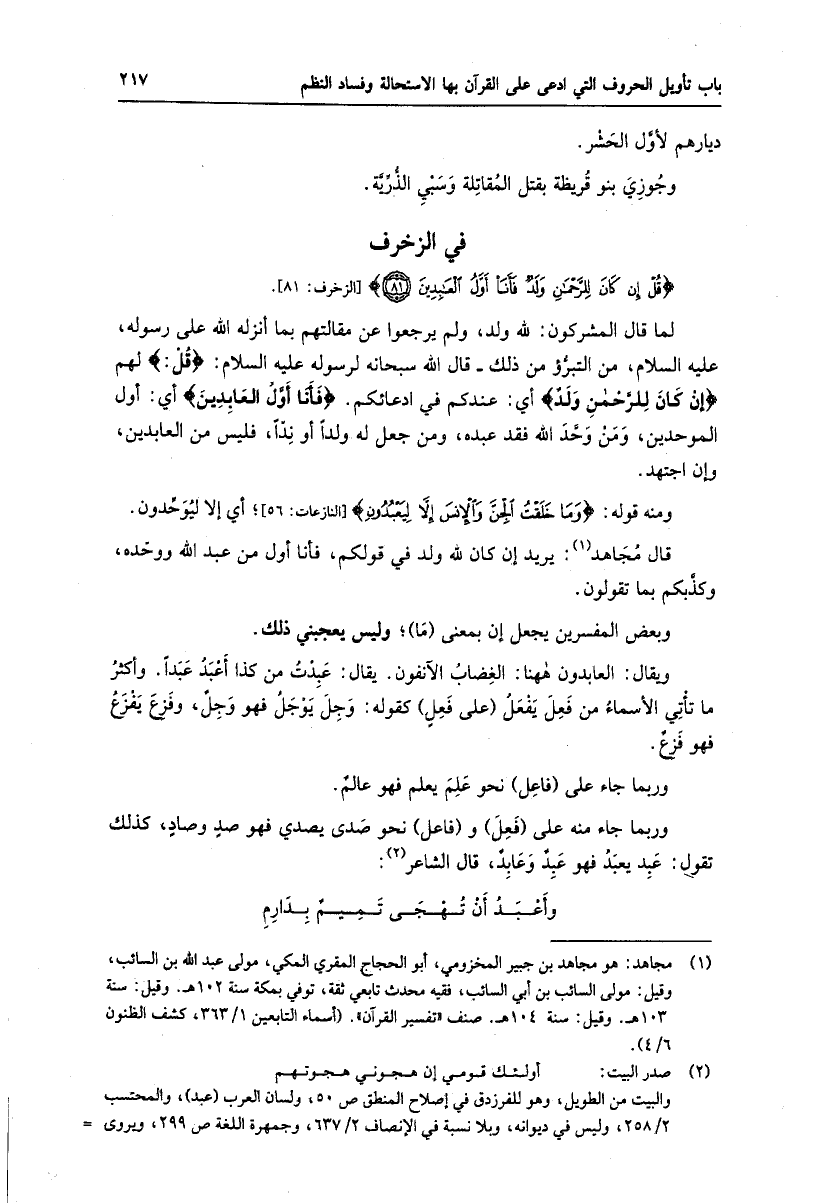 باب تأويل الحروف التي ادعى على القرآن بها الاستحالة وفساد النظم ٢١٧
ديارهم لأوَّل الحَشْر.
وجُوزِيَ بنو قُريظة بقتل المُقاتِلة وَسَبْيِ الذُّرِّيَّة.
في الزخرف
﴿قُلْ إِن كَانَ لِلرَّحْمَٰنِ وَلَدٌ فَأَنَا۠ أَوَّلُ ٱلْعَٰبِدِينَ ﴿٨١﴾﴾ [الزخرف: ٨١].
لما قال المشركون: لله ولد، ولم يرجعوا عن مقالتهم بما أنزله الله على رسوله،
عليه السلام، من التبرُّؤ من ذلك ـ قال الله سبحانه لرسوله عليه السلام: ﴿قُلْ:﴾ لهم
﴿إنْ كَانَ لِلرَّحْمٰنِ وَلَدٌ﴾ أي: عندكم في ادعائكم. ﴿فَأَنَا أَوَّلُ العَابِدِينَ﴾ أي: أول
الموحدين، وَمَنْ وَحَّدَ الله فقد عبده، ومن جعل له ولداً أو نِدّاً، فليس من العابدين،
وإن اجتهد.
ومنه قوله: ﴿وَمَا خَلَقْتُ ٱلْجِنَّ وَٱلْإِنسَ إِلَّا لِيَعْبُدُونِ﴾ [النازعات: ٥٦]؛ أي إلا ليُوَحِّدون.
قال مُجَاهد(١): يريد إن كان لله ولد في قولكم، فأنا أول من عبد الله ووحّده،
وكذَّبكم بما تقولون.
وبعض المفسرين يجعل إن بمعنى (مَا)؛ وليس يعجبني ذلك.
ويقال: العابدون هٰهنا: الغِضابُ الآنفون. يقال: عَبِدْتُ من كذا أَعْبَدُ عَبَداً. وأكثرُ
ما تأْتِي الأسماءُ من فَعِلَ يَفْعَلُ (على فَعِلٍ) كقوله: وَجِلَ يَوْجَلُ فهو وَجِلٌ، وفَزِعَ يَفْزَعُ
فهو فَزِعٌ.
وربما جاء على (فاعِل) نحو عَلِمَ يعلم فهو عالمٌ.
وربما جاء منه على (فَعِلَ) و (فاعل) نحو صَدى يصدي فهو صدٍ وصادٍ، كذلك
تقول: عَبِد يعبَدُ فهو عَبِدٌ وَعَابِدٌ، قال الشاعر(٢):
وأَعْبَدُ أَنْ تُهْجَى تَمِيمٌ بِدَارِمِ
(١) مجاهد: هو مجاهد بن جبير المخزومي، أبو الحجاج المقري المكي، مولى عبد الله بن السائب،
وقيل: مولى السائب بن أبي السائب، فقيه محدث تابعي ثقة، توفي بمكة سنة ١٠٢هـ. وقيل: سنة
١٠٣هـ. وقيل: سنة ١٠٤هـ. صنف «تفسير القرآن». (أسماء التابعين ٣٦٣/١، كشف الظنون
٤/٦).
(٢) صدر البيت: أولئك قومي إن هجوني هجوتهم
والبيت من الطويل، وهو للفرزدق في إصلاح المنطق ص ٥٠، ولسان العرب (عبد)، والمحتسب
٢٥٨/٢، وليس في ديوانه، وبلا نسبة في الإنصاف ٦٣٧/٢، وجمهرة اللغة ص ٢٩٩، ويروى =